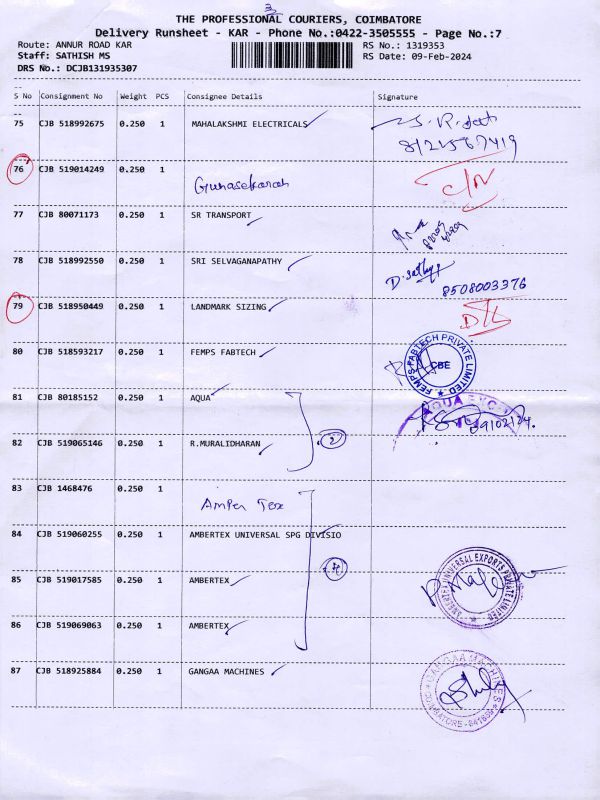 3
THE PROFESSIONAL COURIERS, COIMBATORE
Delivery Runsheet - KAR - Phone No.:0422-3505555 - Page No.:7
Route: ANNUR ROAD KAR RS No.: 1319353
Staff: SATHISH MS RS Date: 09-Feb-2024
DRS No.: DCJB131935307
S No Consignment No Weight PCS Consignee Details Signature
75 CJB 518992675 0.250 1 MAHALAKSHMI ELECTRICALS
76 CJB 519014249 0.250 1 Gunasekaran
77 CJB 80071173 0.250 1 SR TRANSPORT
78 CJB 518992550 0.250 1 SRI SELVAGANAPATHY
8508003376
79 CJB 518950449 0.250 1 LANDMARK SIZING
80 CJB 518593217 0.250 1 FEMPS FABTECH
FEMPS FABTECH PRIVATE LIMITED
CBE
81 CJB 80185152 0.250 1 AQUA
AQUA
09/02/24.
82 CJB 519065146 0.250 1 R.MURALIDHARAN
2
83 CJB 1468476 0.250 1 Amper Tex
84 CJB 519060255 0.250 1 AMBERTEX UNIVERSAL SPG DIVISIO
85 CJB 519017585 0.250 1 AMBERTEX
4
UNIVERSAL EXPORTS PRIVATE LIMITED
86 CJB 519069063 0.250 1 AMBERTEX
87 CJB 518925884 0.250 1 GANGAA MACHINES
GANGAA MACHINES
COIMBATORE